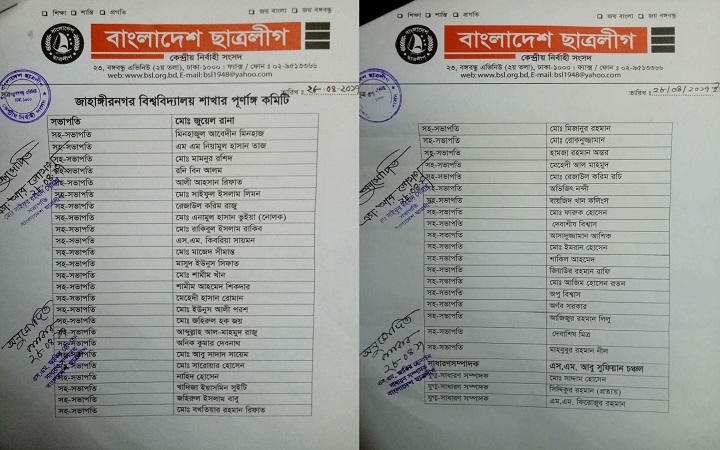 □ শিক্ষা □ শান্তি □ প্রগতি
□ জয় বাংলা □ জয় বঙ্গবন্ধু
বাংলাদেশ ছাত্রলীগ
কেন্দ্রীয় নির্বাহী সংসদ
২৩, বঙ্গবন্ধু এভিনিউ (২য় তলা), ঢাকা-১০০০ ফ্যাক্স / ফোন : ০২-৯৫১৩৬৬৬
web: www.bsl.org.bd, E-mail: bsl1948@yahoo.com
তারিখ : ২৮-০৪-২০১৭
জাহাঙ্গীরনগর বিশ্ববিদ্যালয় শাখার পূর্ণাঙ্গ কমিটি
সভাপতি মোঃ জুয়েল রানা
সহ-সভাপতি মিনহাজুল আবেদীন মিনহাজ
সহ-সভাপতি এম এম নিয়ামুল হাসান তাজ
সহ-সভাপতি মোঃ মামনুর রশিদ
সহ-সভাপতি রনি বিন আলম
সহ-সভাপতি আলী আহসান রিফাত
সহ-সভাপতি মোঃ সাইফুল ইসলাম লিমন
সহ-সভাপতি রেজাউল করিম রাজু
সহ-সভাপতি মোঃ এনামুল হাসান ভুইয়া (নোলক)
সহ-সভাপতি মোঃ রাকিবুল ইসলাম রাকিব
সহ-সভাপতি এস.এম. কিবরিয়া সায়মন
সহ-সভাপতি মোঃ মাজেদ সীমান্ত
সহ-সভাপতি মাসুদ ইউনুস সিফাত
সহ-সভাপতি মোঃ শামীম খাঁন
সহ-সভাপতি শামীম আহমেদ শিকদার
সহ-সভাপতি মেহেদী হাসান রোমান
সহ-সভাপতি মোঃ ইউনুস আলী পরশ
সহ-সভাপতি মোঃ জহিরুল হক জয়
সহ-সভাপতি আব্দুল্লাহ আল-মাহমুদ রাজু
সহ-সভাপতি অনিক কুমার দেবনাথ
সহ-সভাপতি মোঃ আবু সাদান সায়েম
সহ-সভাপতি মোঃ সারোয়ার হোসেন
সহ-সভাপতি নাহিদ হোসেন
সহ-সভাপতি খাদিজা ইয়াসমিন সুইটি
সহ-সভাপতি জহিরুল ইসলাম বাবু
সহ-সভাপতি মোঃ বখতিয়ার রহমান রিফাত
অনুমোদিত
২৮-০৪-১৭
□ শিক্ষা □ শান্তি □ প্রগতি
□ জয় বাংলা □ জয় বঙ্গবন্ধু
বাংলাদেশ ছাত্রলীগ
কেন্দ্রীয় নির্বাহী সংসদ
২৩, বঙ্গবন্ধু এভিনিউ (২য় তলা), ঢাকা-১০০০ ফ্যাক্স / ফোন : ০২-৯৫১৩৬৬৬
web: www.bsl.org.bd, E-mail: bsl1948@yahoo.com
তারিখ : ২৮/০৪/২০১৭
সহ-সভাপতি মোঃ মিজানুর রহমান
সহ-সভাপতি মোঃ রোকনুজ্জামান
সহ-সভাপতি হামজা রহমান অন্তর
সহ-সভাপতি মেহেদী আল মাহমুদ
সহ-সভাপতি মোঃ রেজাউল করিম রচি
সহ-সভাপতি অভিজিৎ নন্দী
সহ-সভাপতি বায়জিদ খান কলিংস
সহ-সভাপতি মোঃ ফারুক হোসেন
সহ-সভাপতি দেবাশীষ বিশ্বাস
সহ-সভাপতি আসাদুজ্জামান আশিক
সহ-সভাপতি মোঃ ইমরান হোসেন
সহ-সভাপতি শাকিল আহমেদ
সহ-সভাপতি জিয়াউর রহমান রাফি
সহ-সভাপতি মোঃ আজিম হোসেন রতন
সহ-সভাপতি অপু বিশ্বাস
সহ-সভাপতি অর্ণব সরকার
সহ-সভাপতি আজিজুর রহমান লিলু
সহ-সভাপতি দেবাশিষ মিত্র
সহ-সভাপতি মাহবুবুর রহমান নীল
সাধারণসম্পাদক এস.এম. আবু সুফিয়ান চঞ্চল
যুগ্ম-সাধারণ সম্পাদক মোঃ সাদ্দাম হোসেন
যুগ্ম-সাধারণ সম্পাদক সিদ্দিকুর রহমান (প্রত্যয়)
যুগ্ম-সাধারণ সম্পাদক এম.এম. ফিরোজুর রহমান
অনুমোদিত